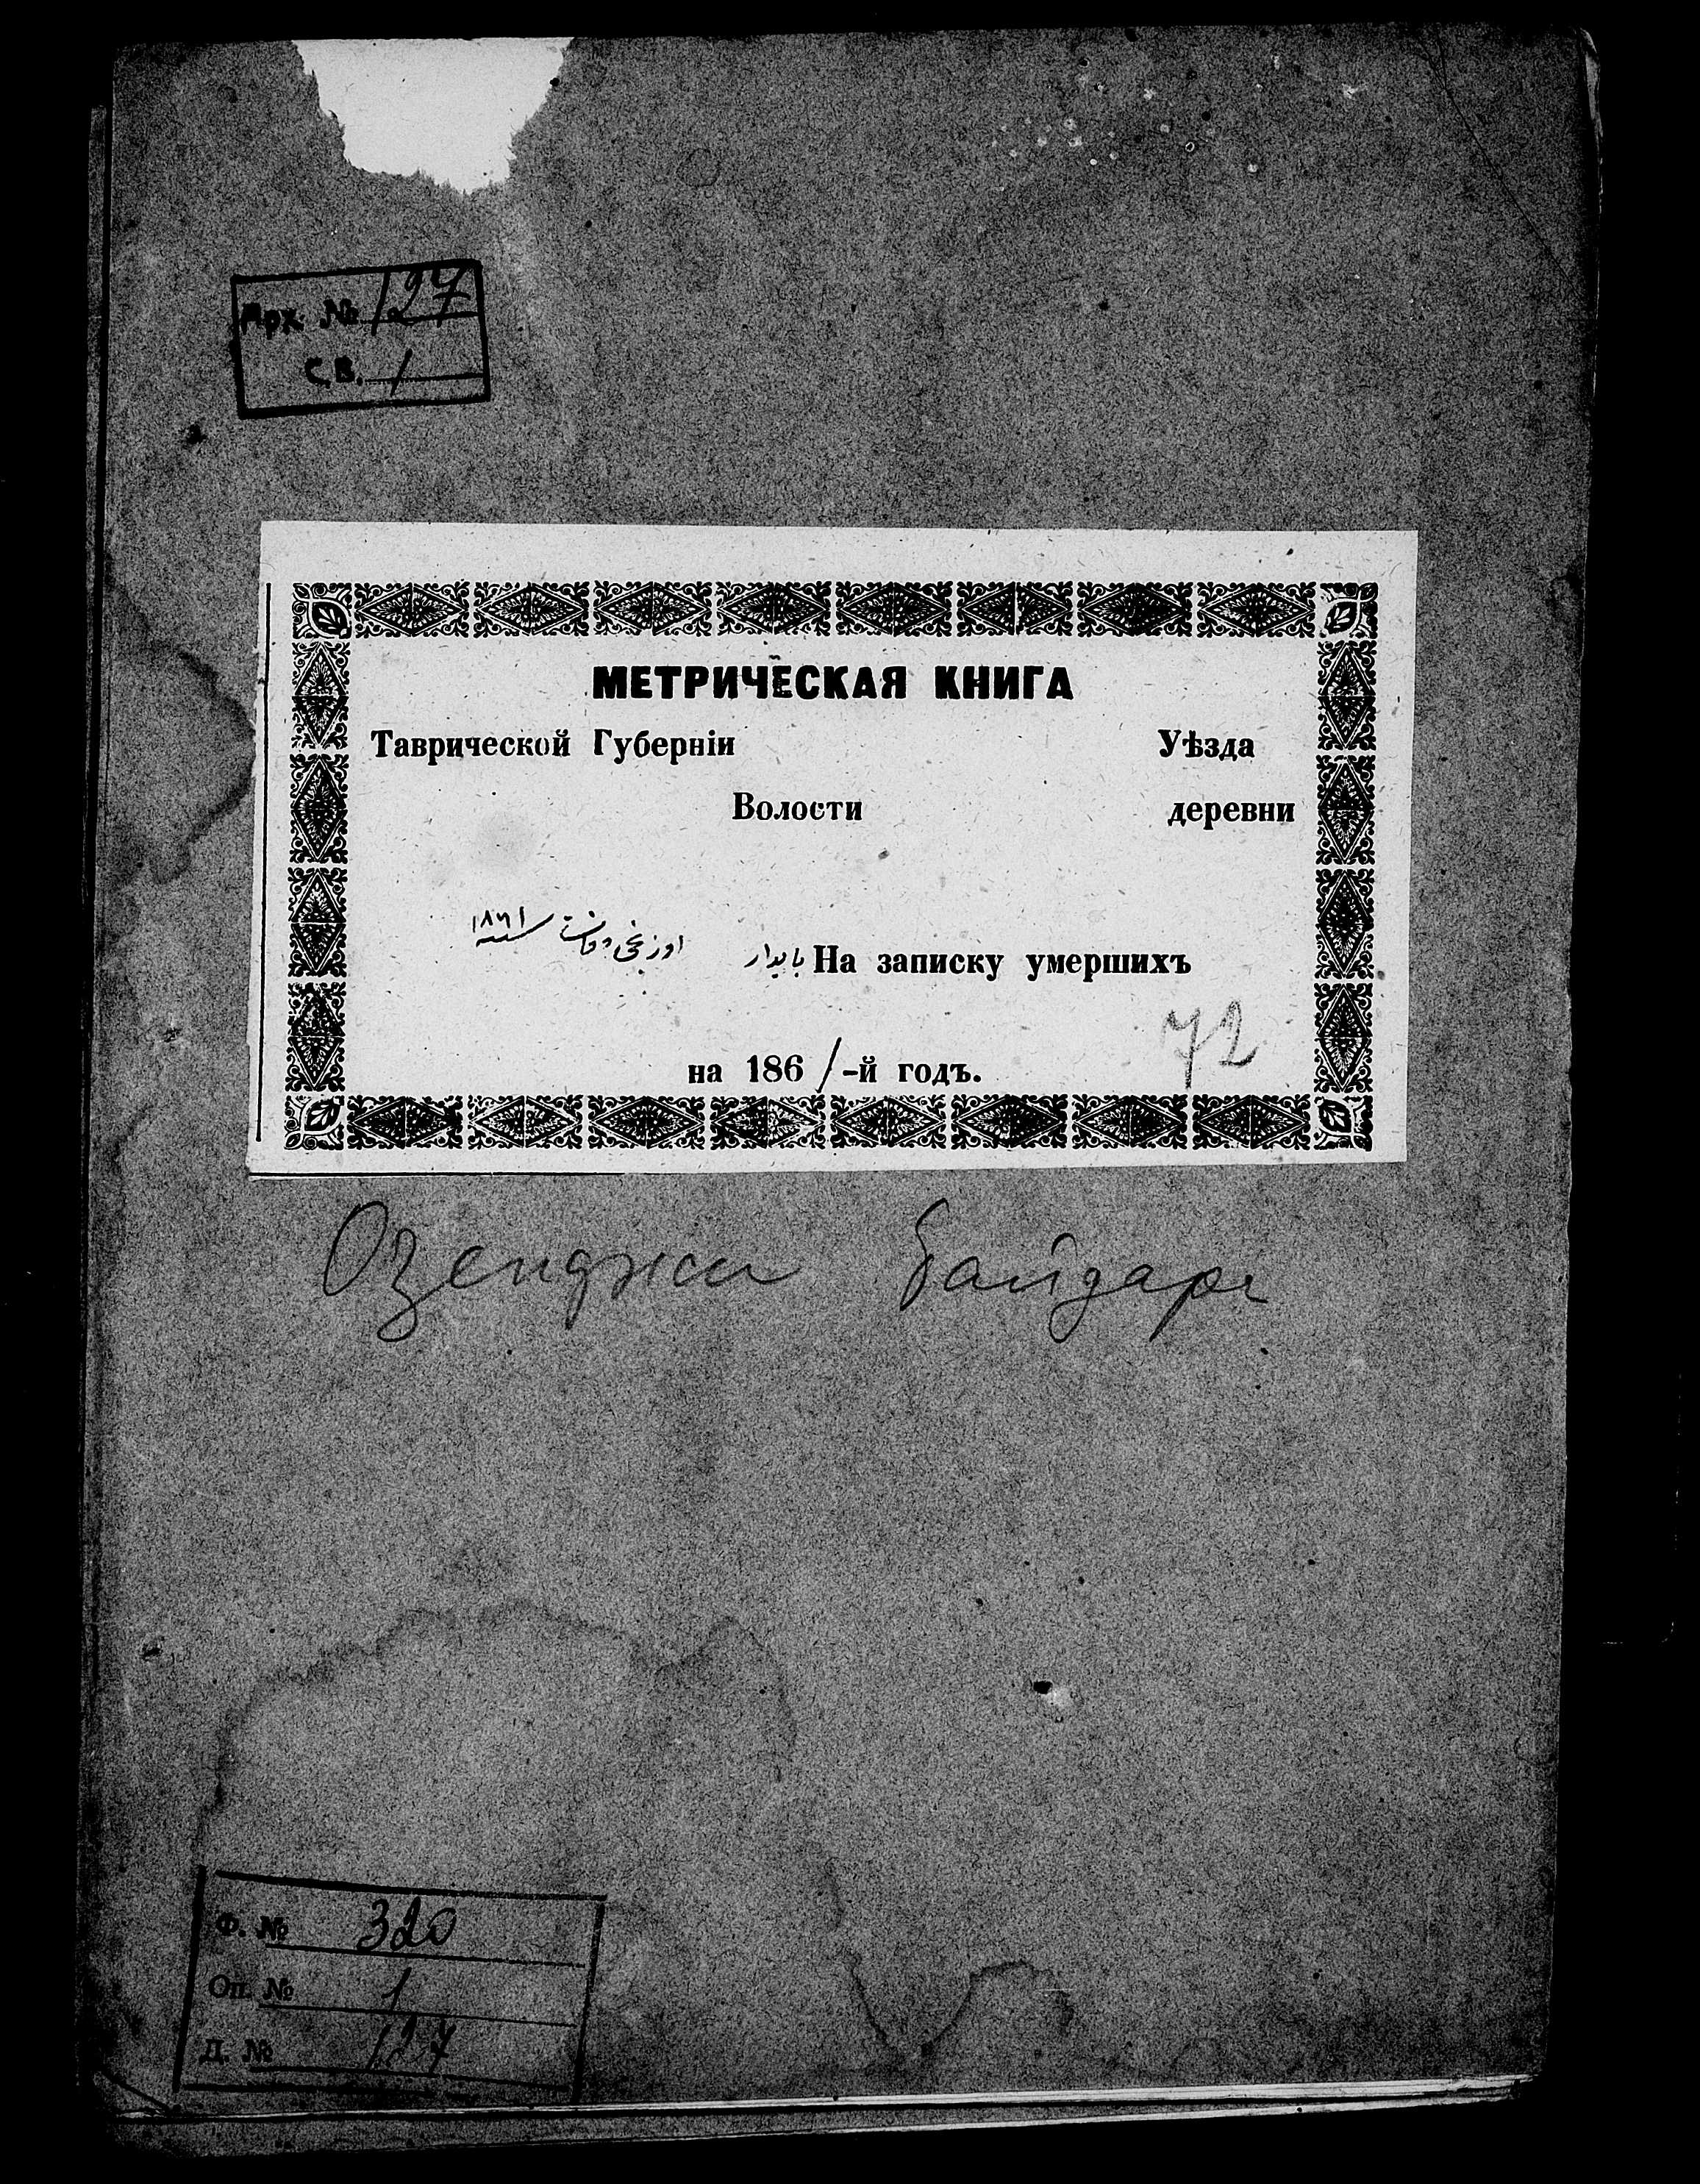 Арх. № 127
С.В. 1
МЕТРИЧЕСКАЯ КНИГА
Таврической Губерніи Уѣзда
Волости деревни
بايدار На записку умершихъ
سنه ١٨٦١
72
на 1861-й годъ.
Озенджи Байдары
Ф. № 320
Оп. № 1
Д. № 127